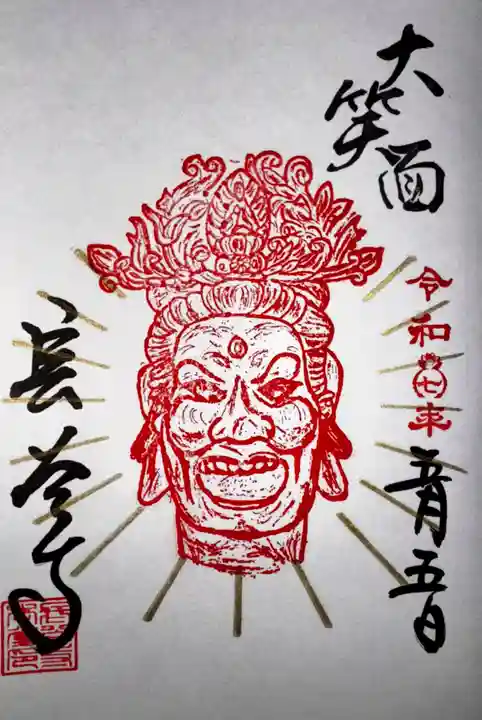 大笑面
令和七年
月五日
長谷寺